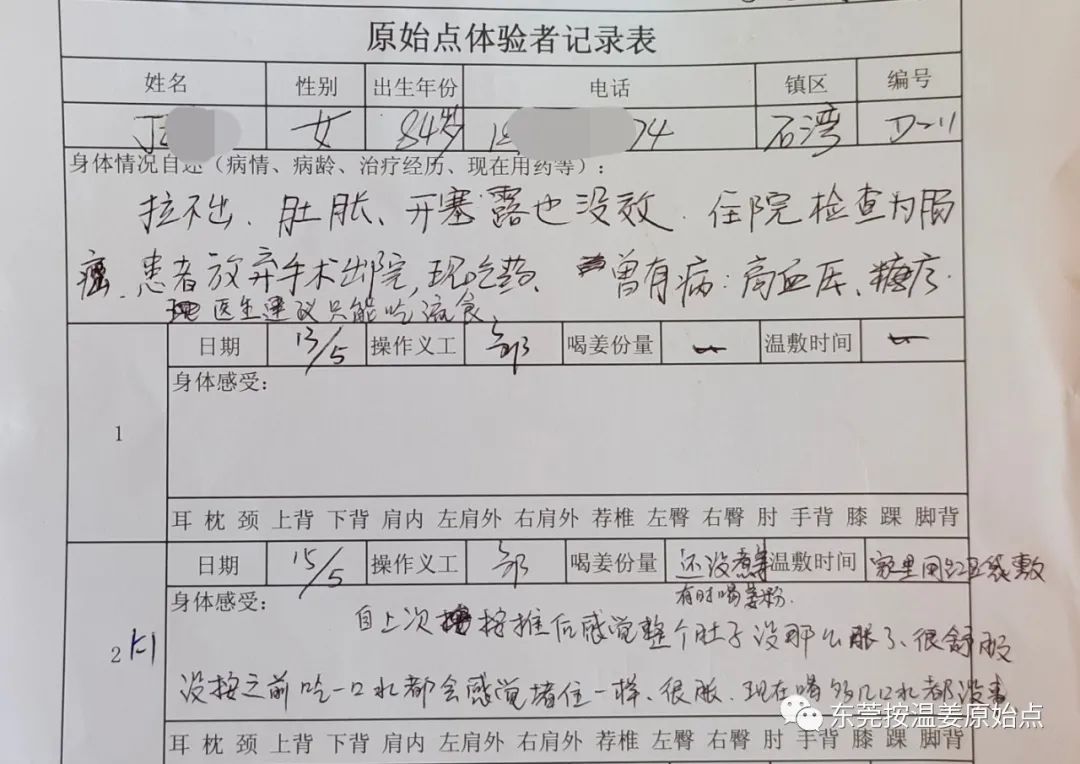 原始点体验者记录表
姓名 性别 出生年份 电话 镇区 编号
女 84岁 74 石湾 D-11
身体情况自述（病情、病龄、治疗经历、现在用药等）：
拉不出、肚胀、开塞露也没效. 住院检查为肠
癌. 患者放弃手术出院, 现吃药、 曾有病：高血压、糖尿.
医生建议只能吃流食
日期 13/5 操作义工 喝姜份量 温敷时间
1
身体感受：
耳 枕 颈 上背 下背 肩内 左肩外 右肩外 荐椎 左臀 右臀 肘 手背 膝 踝 脚背
日期 15/5 操作义工 喝姜份量 还没煮 温敷时间 家里用红豆袋敷
有时喝姜粉.
2
身体感受：
自上次按推后感觉整个肚子没那么胀了、很舒服
没按之前吃一口水都会感觉堵住一样、很胀. 现在喝多几口水都没事
耳 枕 颈 上背 下背 肩内 左肩外 右肩外 荐椎 左臀 右臀 肘 手背 膝 踝 脚背
东莞按温姜原始点